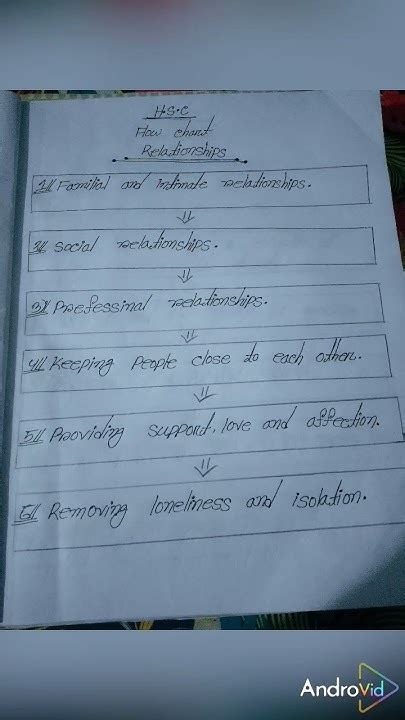 H.S.C
Flow chart
Relationships
1// Familial and intimate relationships.
2// Social relationships.
3// Prefessinal relationships.
4// Keeping people close to each other.
5// Providing support, love and affection.
6// Removing loneliness and isolation.
AndroVid